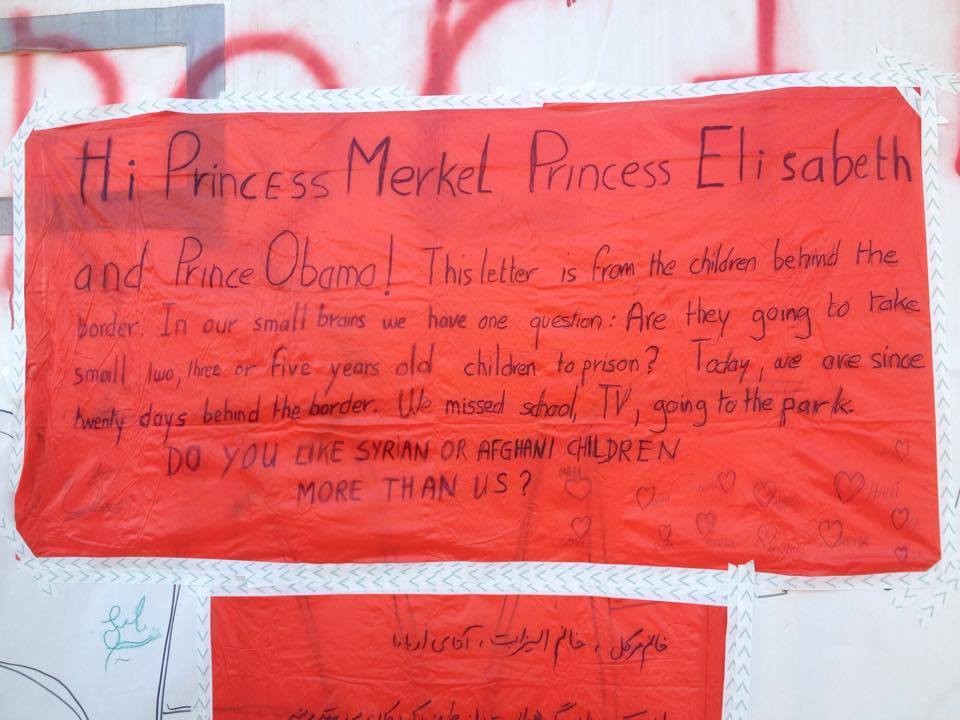 Hi Princess Merkel Princess Elisabeth
and Prince Obama! This letter is from the children behind the
border. In our small brains we have one question: Are they going to take
small two, three or five years old children to prison? Today, we are since
twenty days behind the border. We missed school, TV, going to the park.
DO YOU LIKE SYRIAN OR AFGHANI CHILDREN
MORE THAN US?
HANI
خانم مرکل ، خانم الیزابت ، آقای اوباما